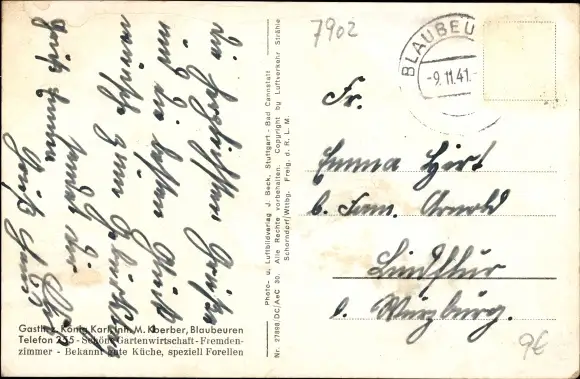 die herzlichsten Grüße
und die besten Glück
wünsche zum Geburtstag
sendet Dir
Gasth. z. König Karl, Inh. M. Koerber, Blaubeuren
Telefon 255 - Schöne Gartenwirtschaft - Fremden-
zimmer - Bekannt gute Küche, speziell Forellen
Photo- u. Luftbildverlag J. Beck, Stuttgart - Bad Cannstatt
Alle Rechte vorbehalten. Copyright by Luftverkehr Strähle
Nr. 27898/DC/AeC 30. Schorndorf/Wttbg. Freig. d. R. L. M.
7902
BLAUBEU
-9.11.41.-
Fr.
Emma Hirt
b. Fam. Arnold
Lindflur
b. Würzburg.
9€